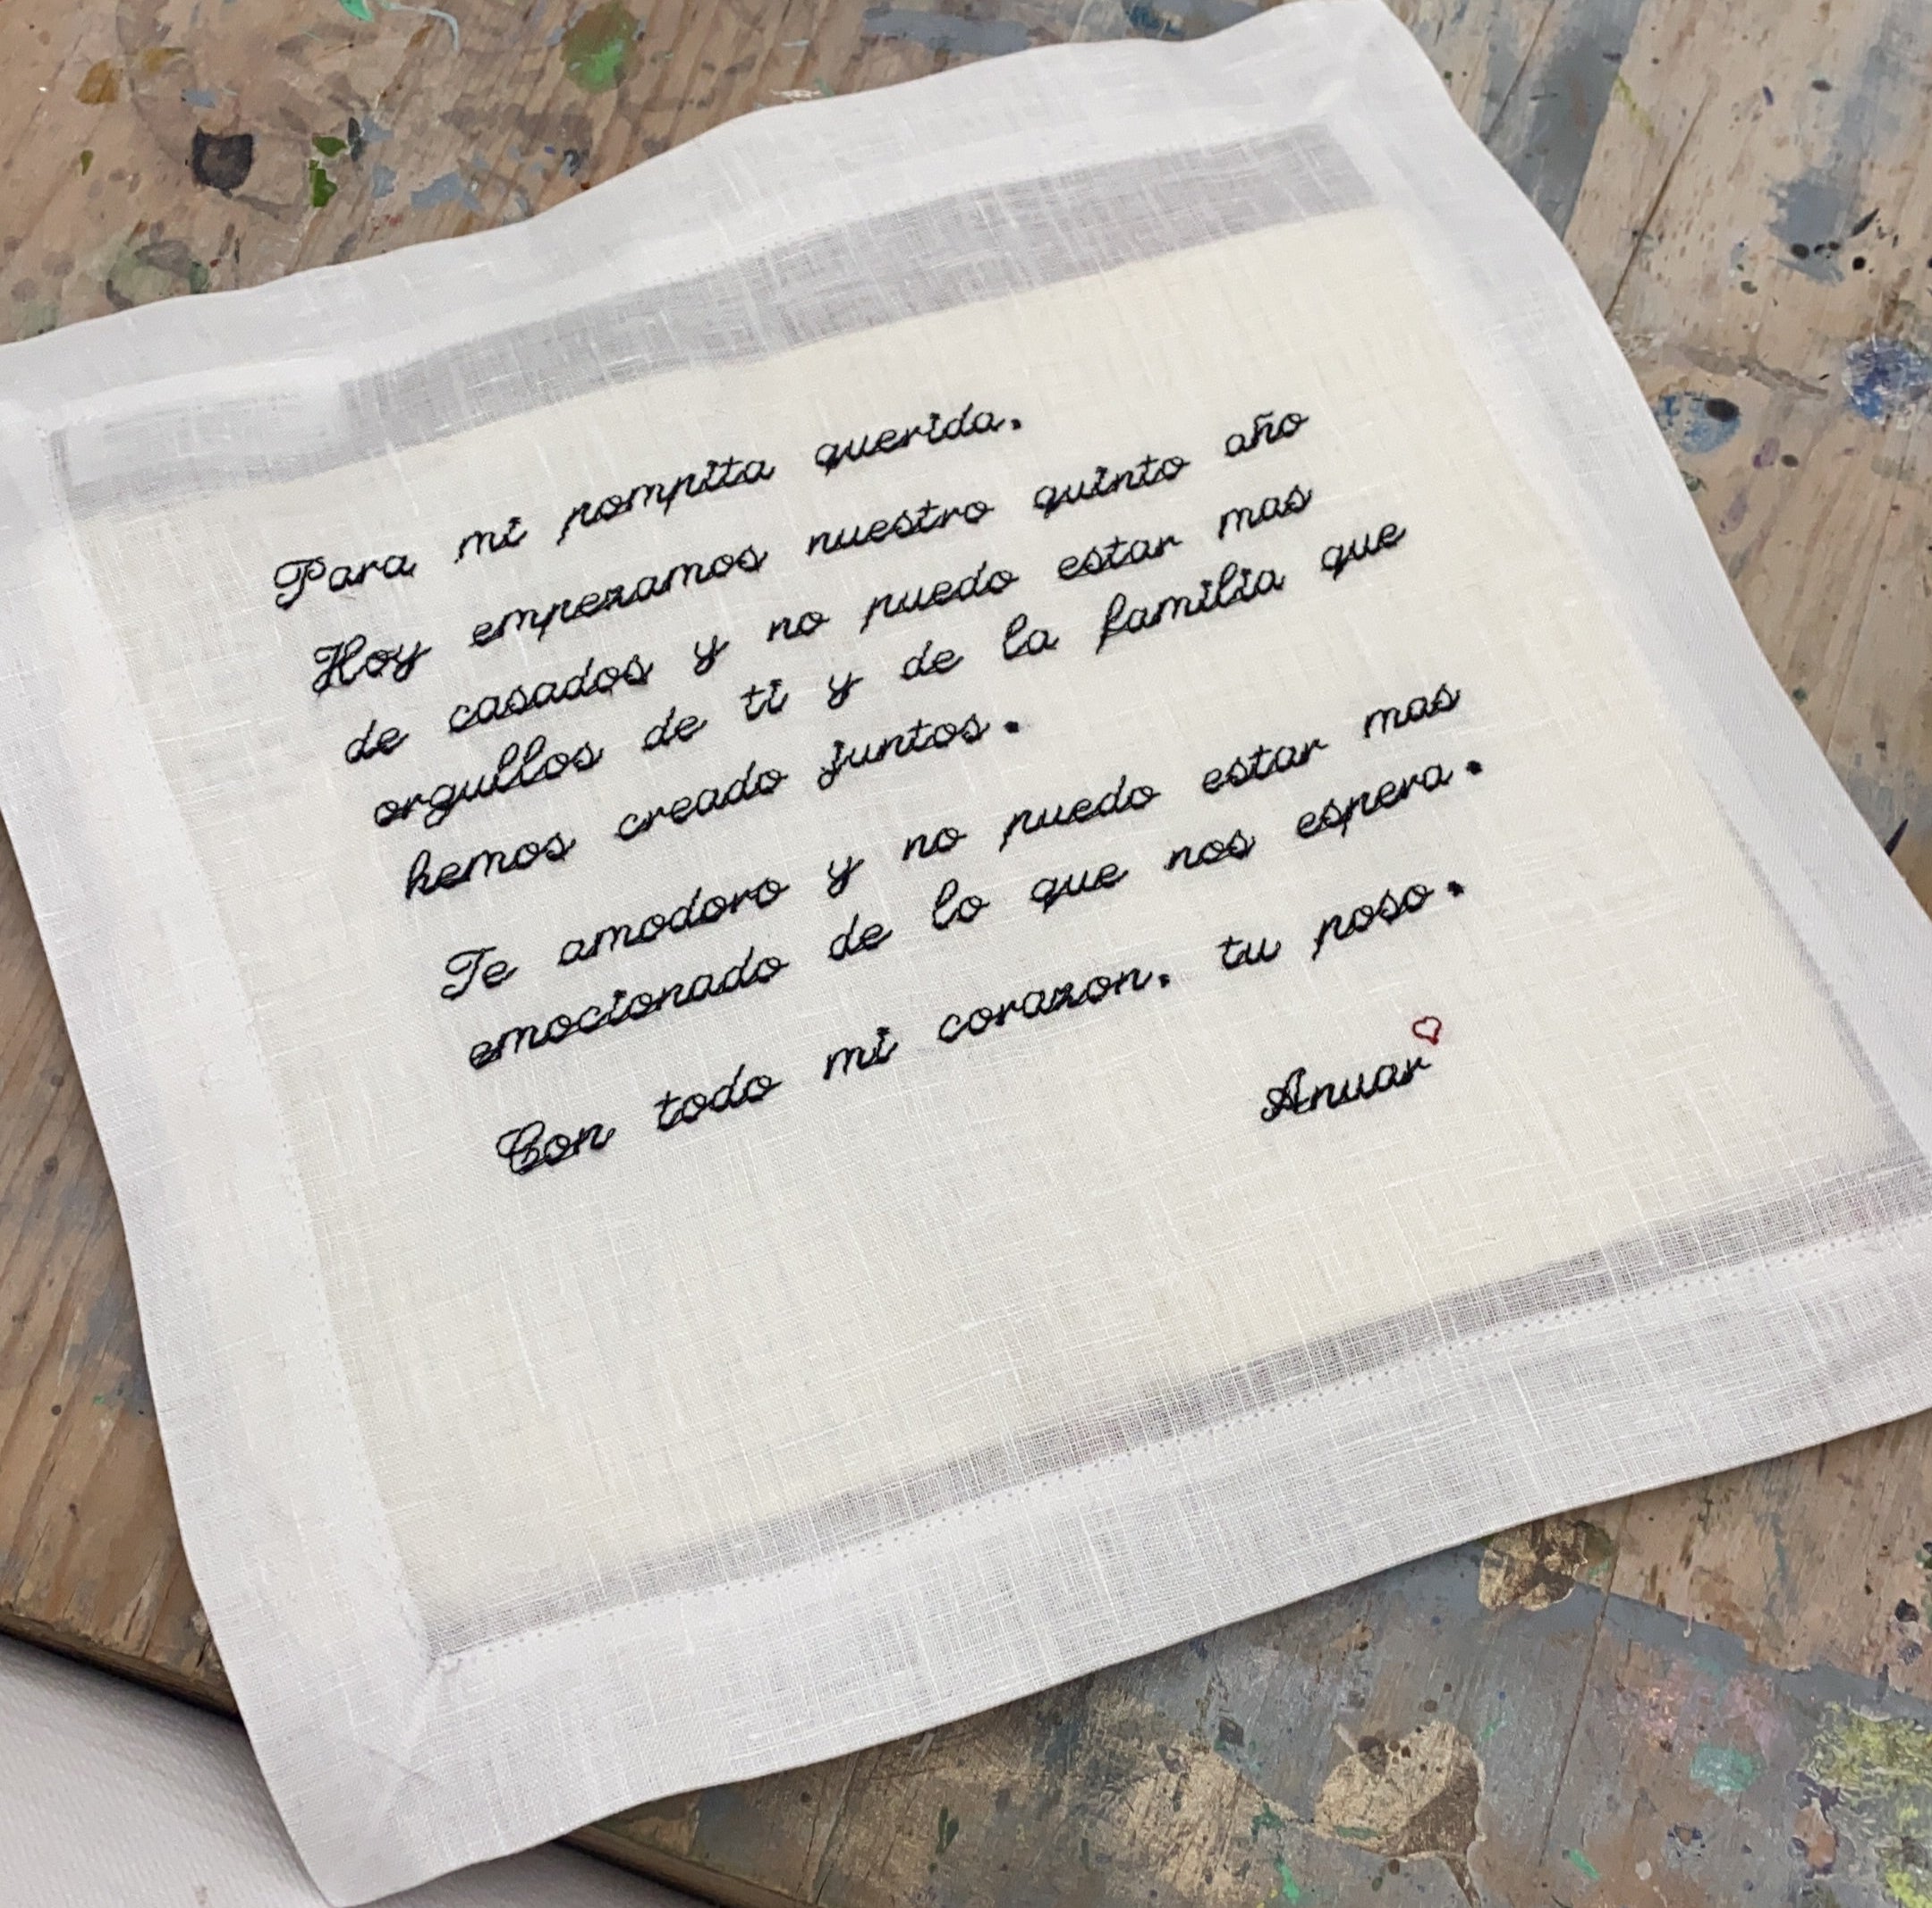 Para mi pompita querida.
Hoy empezamos nuestro quinto año
de casados y no puedo estar mas
orgullos de ti y de la familia que
hemos creado juntos.
Te amodoro y no puedo estar mas
emocionado de lo que nos espera.
Con todo mi corazon. tu poso.
Anuar